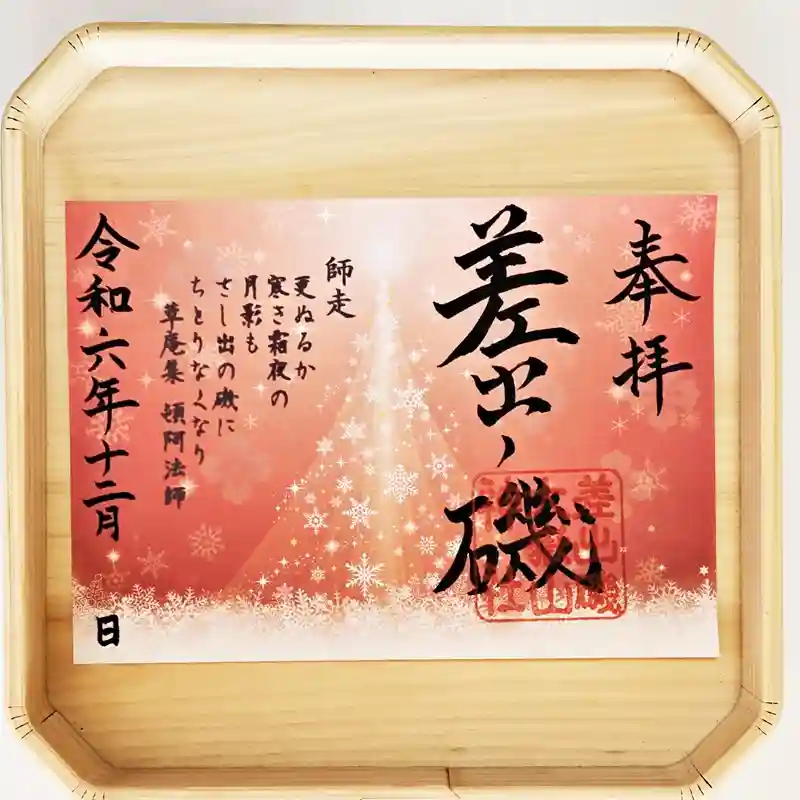 奉拝
差出ノ磯
師走
更ぬるか
寒さ霜夜の
月影も
さし出の磯に
ちとりなくなり
草庵集 頓阿法師
令和六年十二月 日